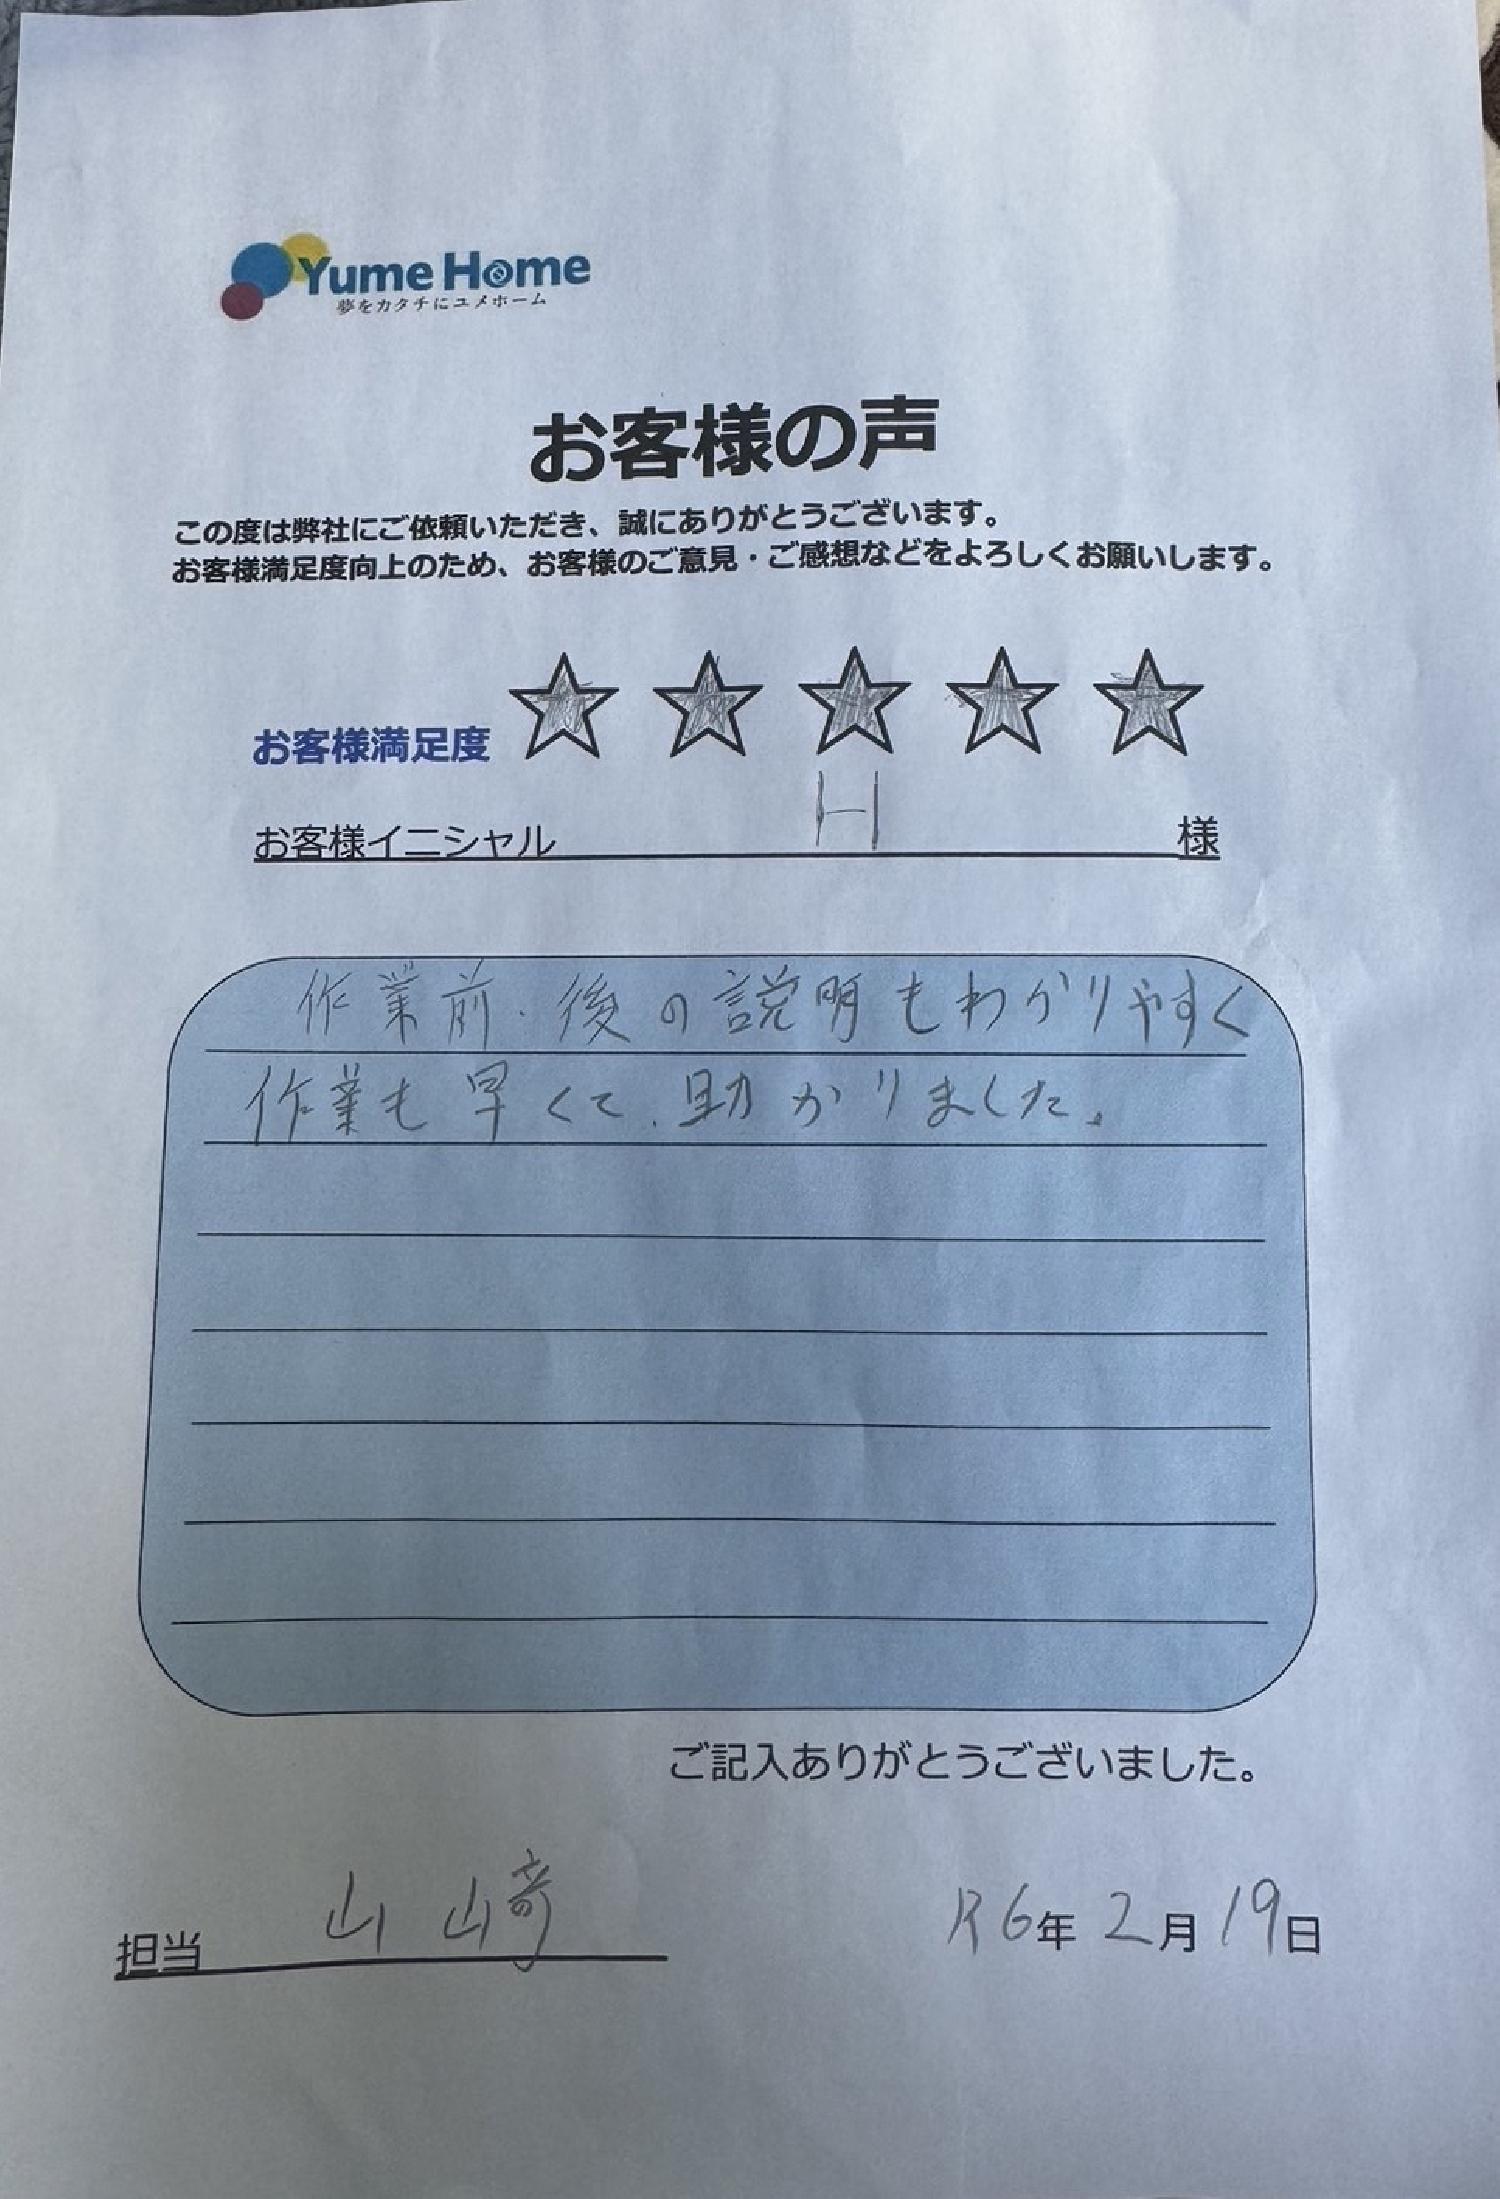 Yume Home
夢をカタチにユメホーム
お客様の声
この度は弊社にご依頼いただき、誠にありがとうございます。
お客様満足度向上のため、お客様のご意見・ご感想などをよろしくお願いします。
お客様満足度 ☆ ☆ ☆ ☆ ☆
お客様イニシャル H 様
作業前・後の説明もわかりやすく
作業も早くて、助かりました。
ご記入ありがとうございました。
担当 山﨑 R6年2月19日